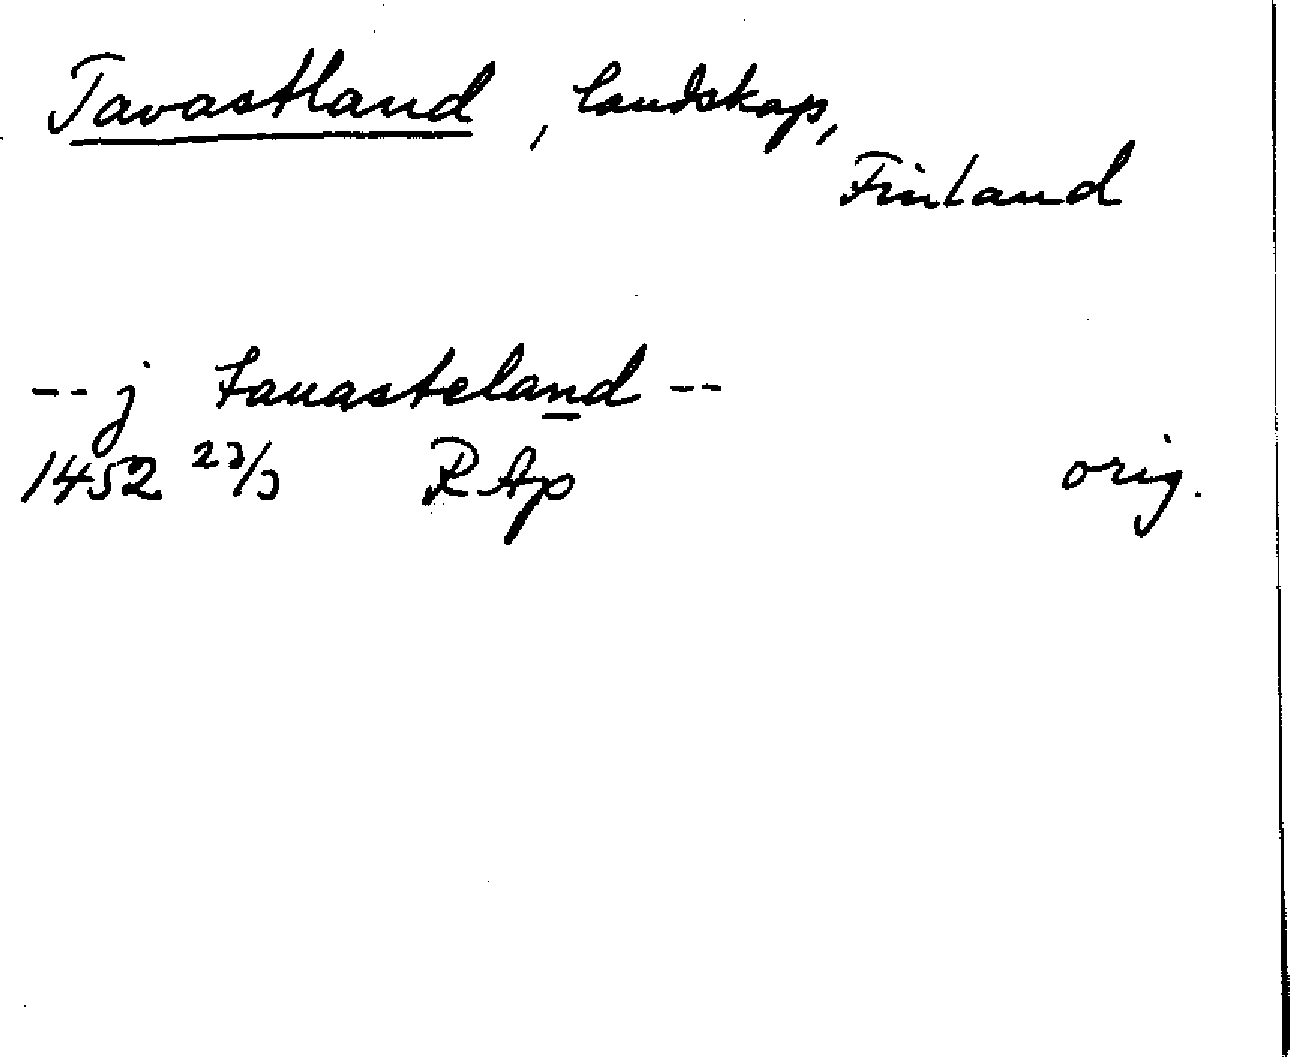 Tavastland, landskap,
Finland
-- j tauasteland --
1452 23/3 RAp orig.